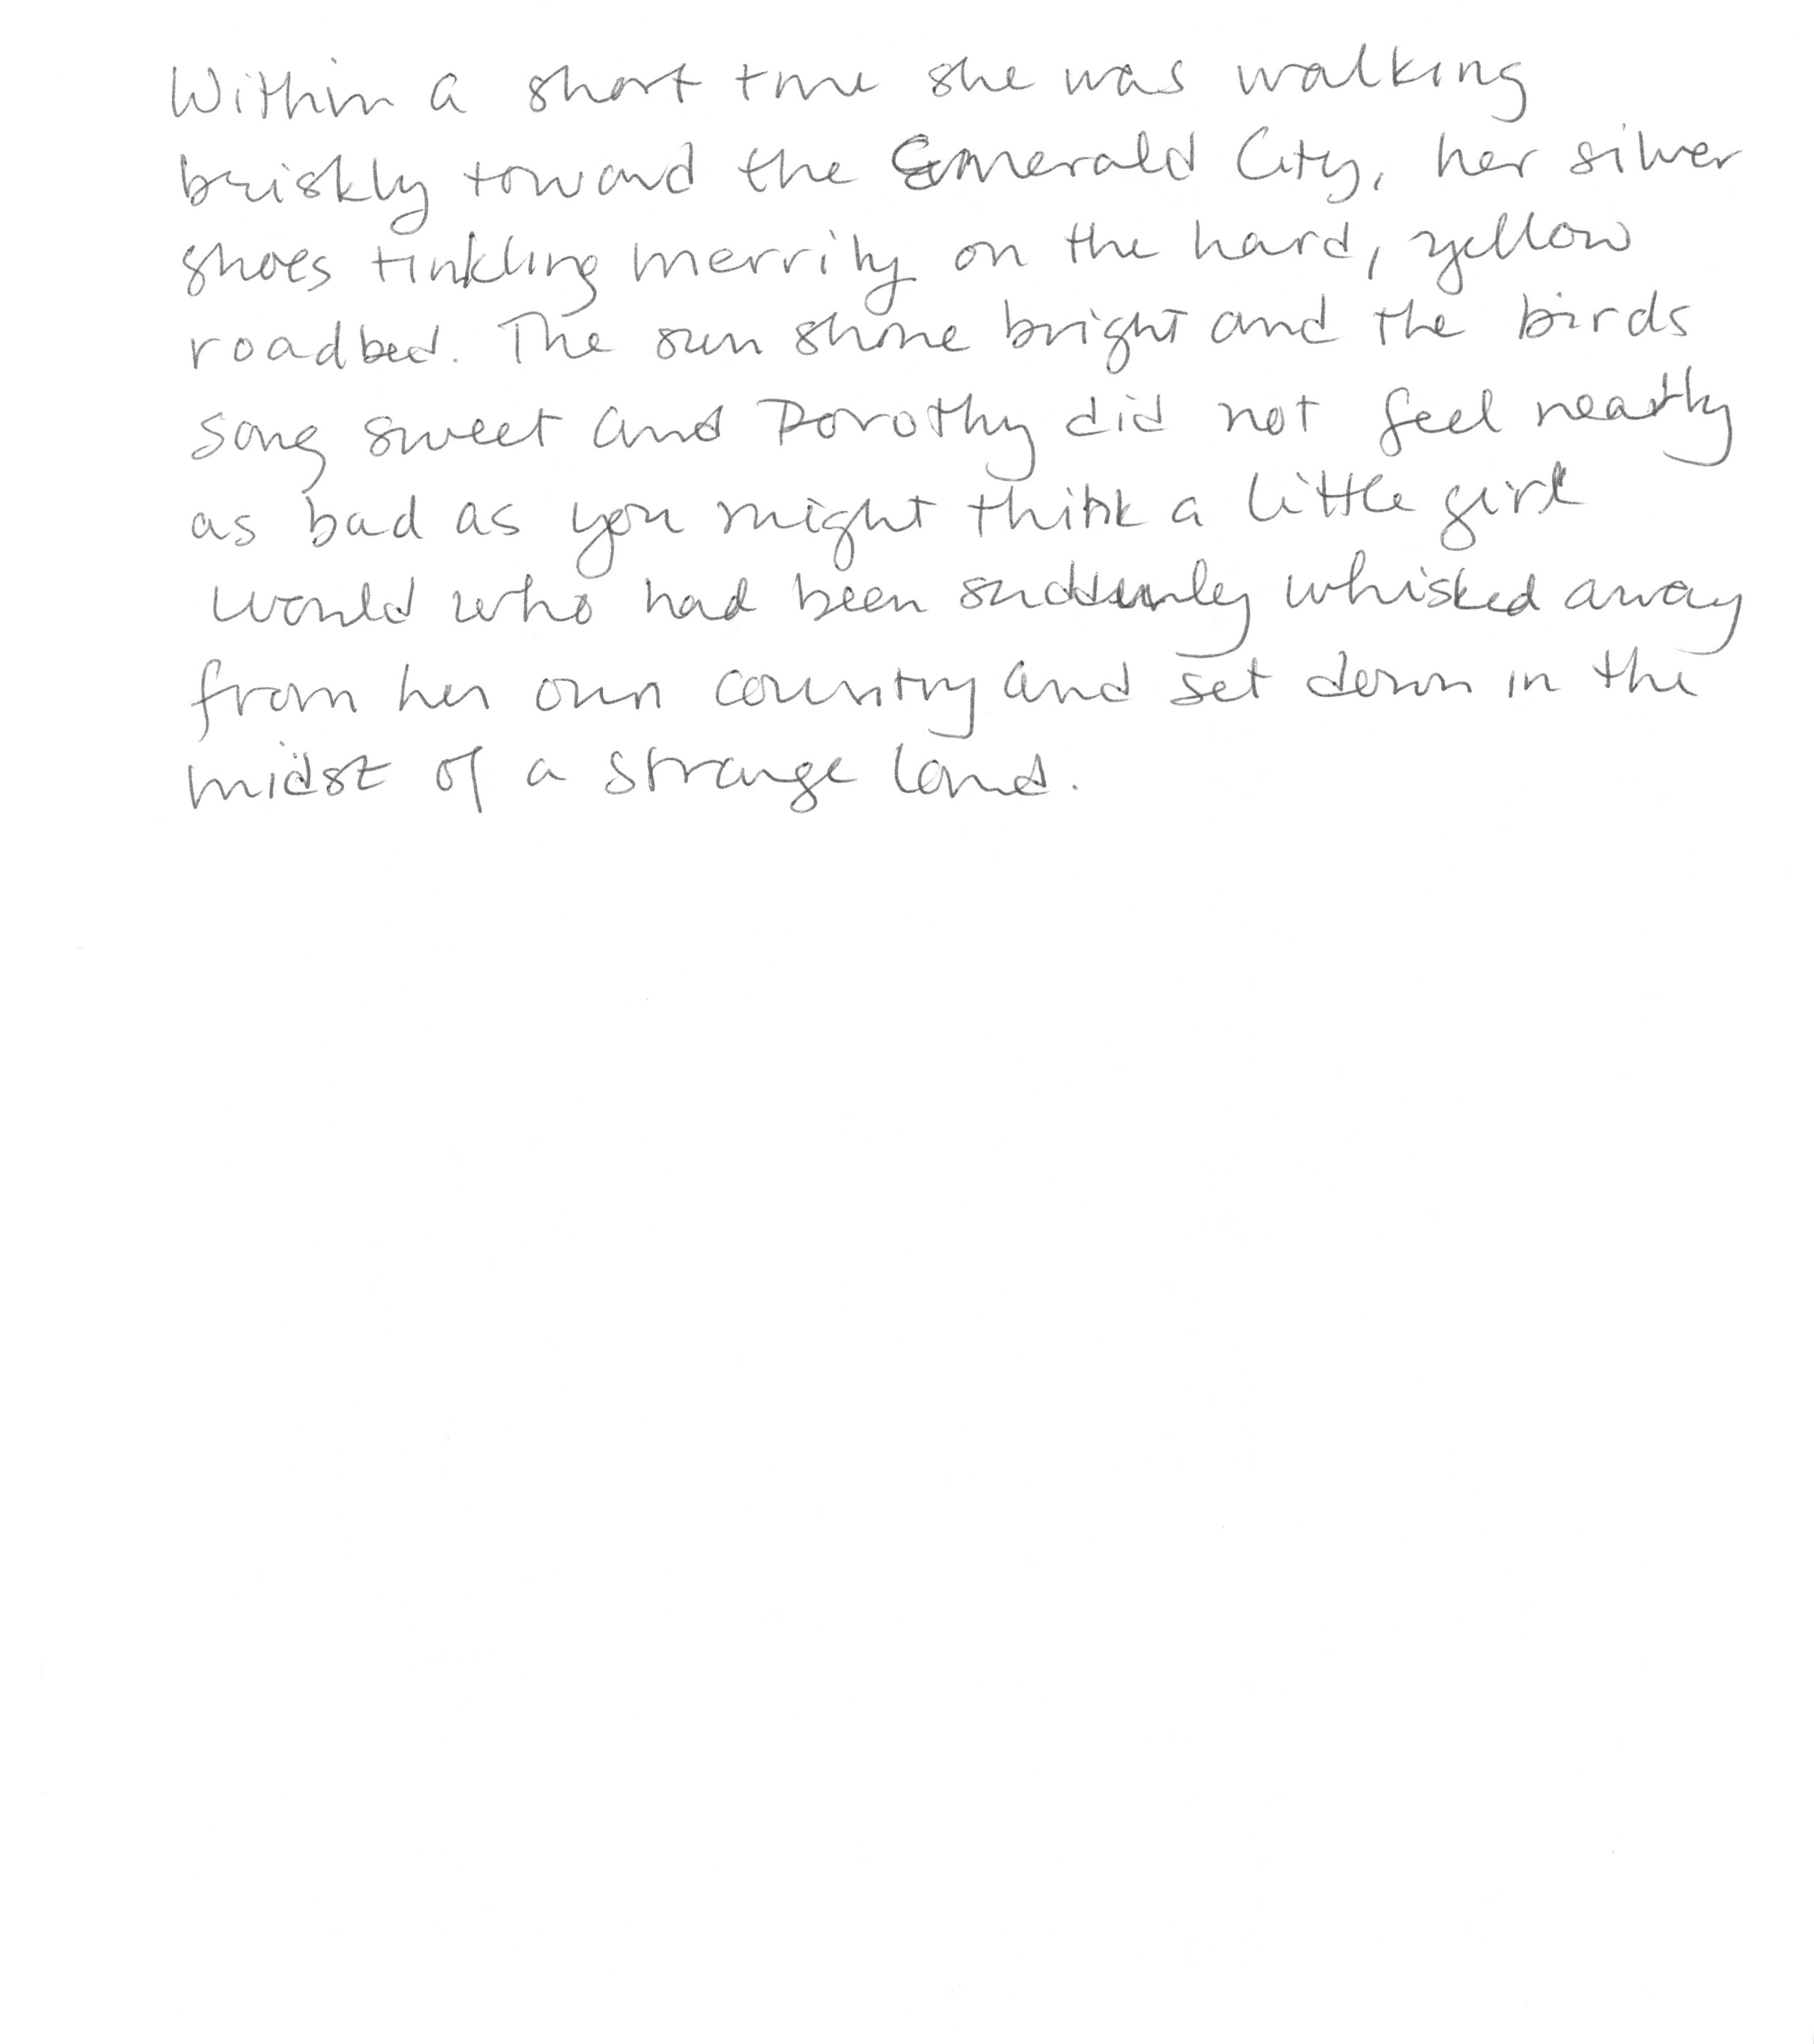 Within a short time she was walking
briskly toward the Emerald City, her silver
shoes tinkling merrily on the hard, yellow
roadbed. The sun shone bright and the birds
song sweet and Dorothy did not feel nearly
as bad as you might think a little girl
would who had been suddenly whisked away
from her own country and set down in the
midst of a strange land.